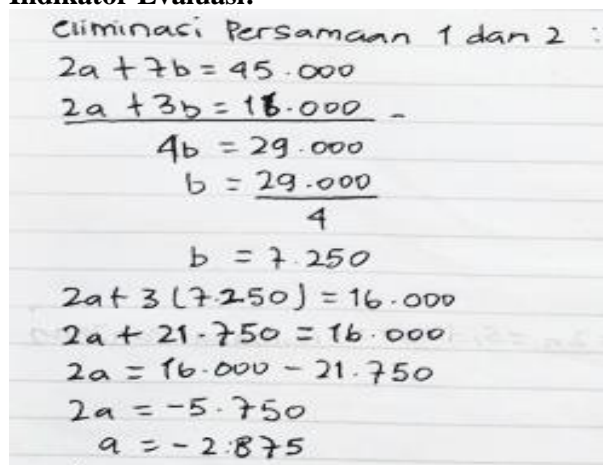 Indikator Evaluasi:
Eliminasi Persamaan 1 dan 2 :
2a + 7b = 45.000
2a + 3b = 16.000 -
4b = 29.000
b = 29.000
4
b = 7.250
2a + 3 (7.250) = 16.000
2a + 21.750 = 16.000
2a = 16.000 - 21.750
2a = -5.750
a = -2.875